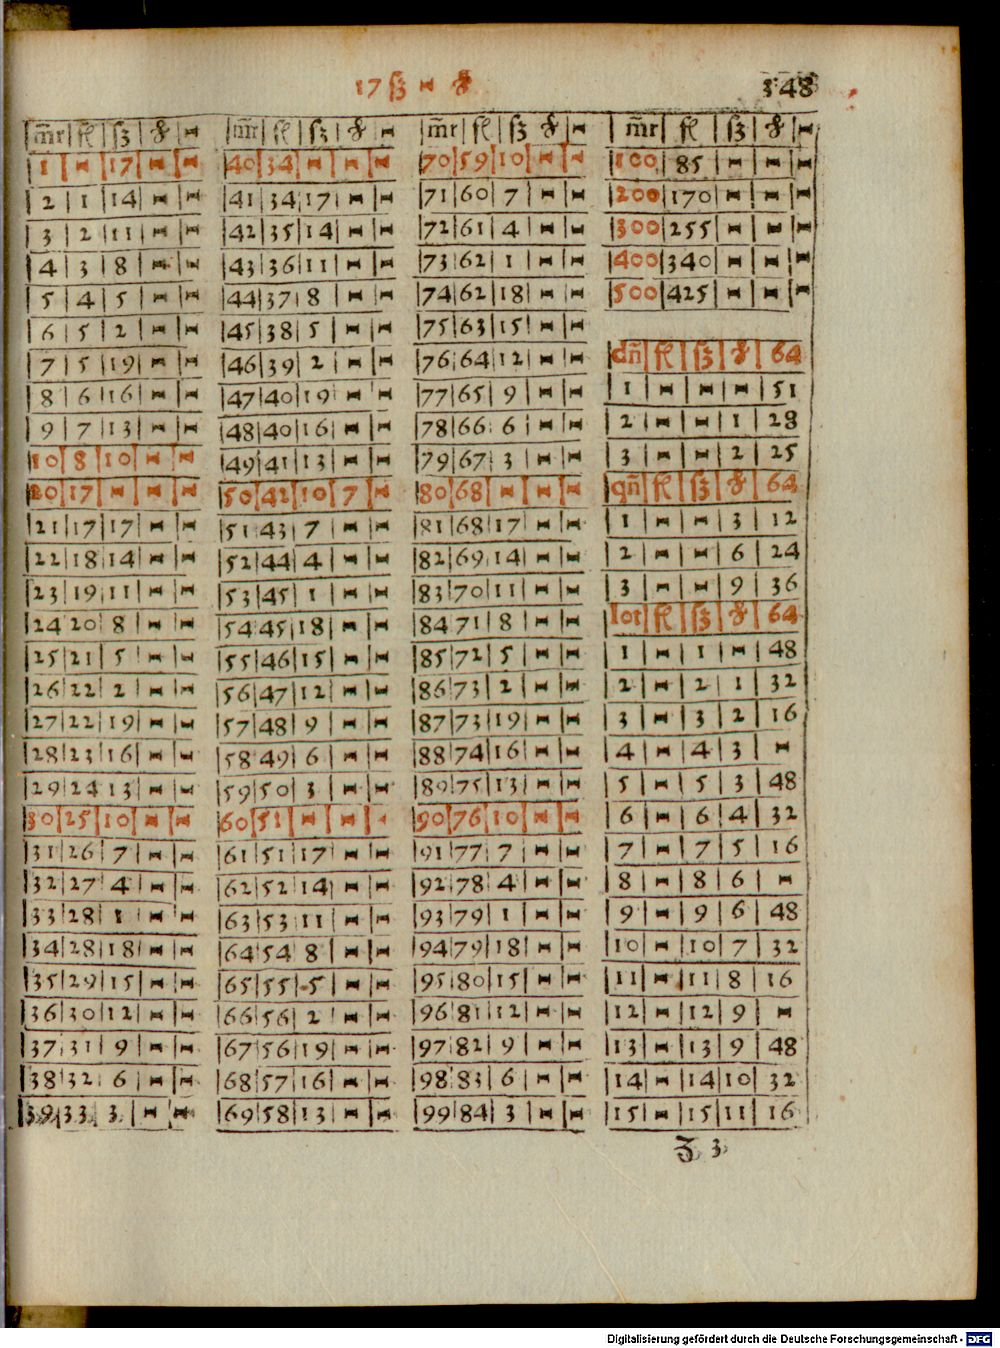 17 ſʒ - ₰
348
m̄r fl ſʒ ₰ -
1 - 17 - -
2 1 14 - -
3 2 11 - -
4 3 8 - -
5 4 5 - -
6 5 2 - -
7 5 19 - -
8 6 16 - -
9 7 13 - -
10 8 10 - -
20 17 - - -
21 17 17 - -
22 18 14 - -
23 19 11 - -
24 20 8 - -
25 21 5 - -
26 22 2 - -
27 22 19 - -
28 23 16 - -
29 24 13 - -
30 25 10 - -
31 26 7 - -
32 27 4 - -
33 28 1 - -
34 28 18 - -
35 29 15 - -
36 30 12 - -
37 31 9 - -
38 32 6 - -
39 33 3 - -
m̄r fl ſʒ ₰ -
40 34 - - -
41 34 17 - -
42 35 14 - -
43 36 11 - -
44 37 8 - -
45 38 5 - -
46 39 2 - -
47 40 19 - -
48 40 16 - -
49 41 13 - -
50 42 10 7 -
51 43 7 - -
52 44 4 - -
53 45 1 - -
54 45 18 - -
55 46 15 - -
56 47 12 - -
57 48 9 - -
58 49 6 - -
59 50 3 - -
60 51 - - -
61 51 17 - -
62 52 14 - -
63 53 11 - -
64 54 8 - -
65 55 5 - -
66 56 2 - -
67 56 19 - -
68 57 16 - -
69 58 13 - -
m̄r fl ſʒ ₰ -
70 59 10 - -
71 60 7 - -
72 61 4 - -
73 62 1 - -
74 62 18 - -
75 63 15 - -
76 64 12 - -
77 65 9 - -
78 66 6 - -
79 67 3 - -
80 68 - - -
81 68 17 - -
82 69 14 - -
83 70 11 - -
84 71 8 - -
85 72 5 - -
86 73 2 - -
87 73 19 - -
88 74 16 - -
89 75 13 - -
90 76 10 - -
91 77 7 - -
92 78 4 - -
93 79 1 - -
94 79 18 - -
95 80 15 - -
96 81 12 - -
97 82 9 - -
98 83 6 - -
99 84 3 - -
m̄r fl ſʒ ₰ -
100 85 - - -
200 170 - - -
300 255 - - -
400 340 - - -
500 425 - - -
dn̄ fl ſʒ ₰ 64
1 - - - 51
2 - - 1 28
3 - - 2 25
qn̄ fl ſʒ ₰ 64
1 - - 3 12
2 - - 6 24
3 - - 9 36
lot fl ſʒ ₰ 64
1 - 1 - 48
2 - 2 1 32
3 - 3 2 16
4 - 4 3 -
5 - 5 3 48
6 - 6 4 32
7 - 7 5 16
8 - 8 6 -
9 - 9 6 48
10 - 10 7 32
11 - 11 8 16
12 - 12 9 -
13 - 13 9 48
14 - 14 10 32
15 - 15 11 16
Z 3
Digitalisierung gefördert durch die Deutsche Forschungsgemeinschaft - DFG